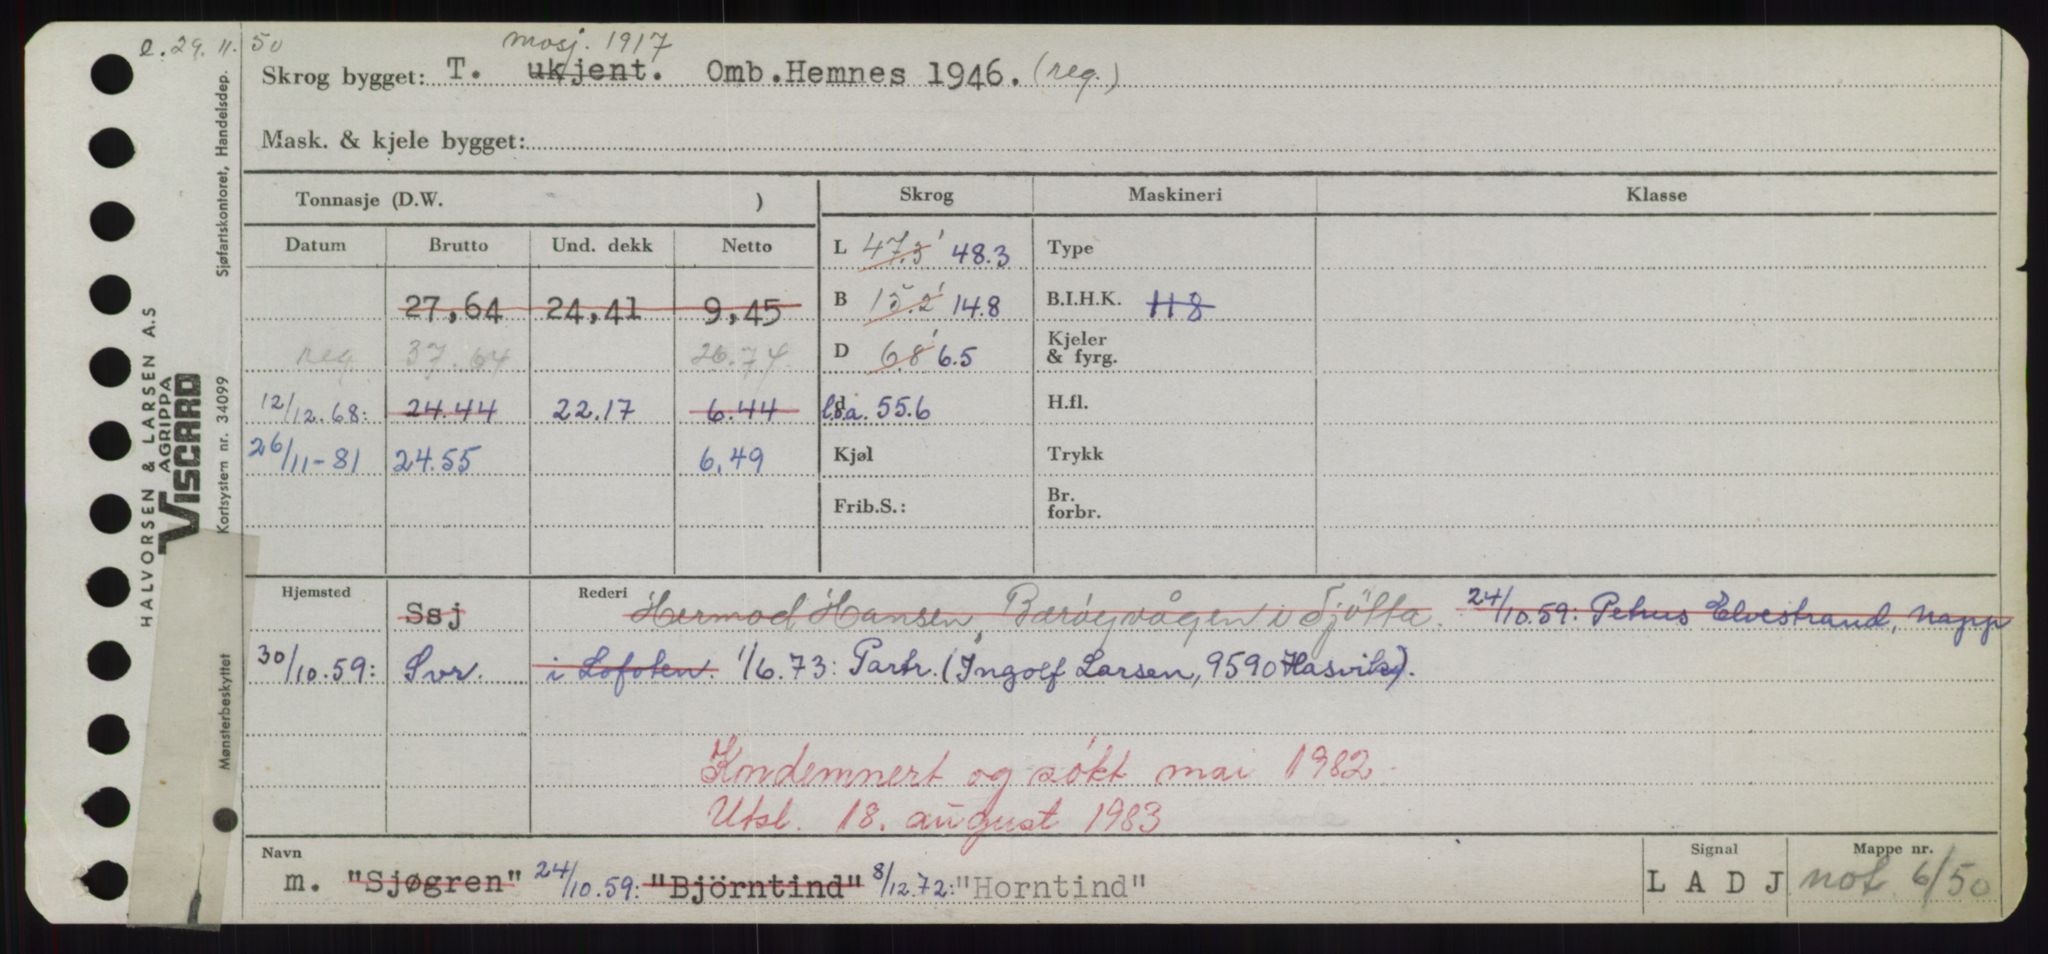 e. 29. 11. 50
mosj. 1917
Skrog bygget: T. ukjent. Omb. Hemnes 1946. (reg.)
Mask. & kjele bygget:
Tonnasje (D.W. )
Skrog Maskineri Klasse
Datum Brutto Und. dekk Netto
L 47.3' 48.3 Type
27,64 24,41 9,45
B 15.2' 14.8 B.I.H.K. 118
reg 37.64 26.74
D 6.8' 6.5 Kjeler & fyrg.
12/12.68: 24.44 22.17 6.44
d l.o.a. 55.6 H.fl.
26/11-81 24.55 6.49
Kjøl Trykk
Frib.S.: Br. forbr.
Hjemsted Ssj Rederi Hermod Hansen Bærøyvågen i Tjötta. 24/10.59: Petrus Elvestrand, Napp
30/10.59: Svr. i Lofoten. 1/6.73: Partr. (Ingolf Larsen, 9590 Hasvik).
Kondemnert og søkt mai 1982.
Utsl. 18. august 1983
Navn Signal Mappe nr.
m. "Sjøgren" 24/10.59: "Björntind" 8/12.72: "Horntind" L A D J not. 6/50
HALVORSEN & LARSEN A.S
AGRIPPA
VISCARD
Mønsterbeskyttet Kortsystem nr. 34099 Sjøfartskontoret, Handelsdep.